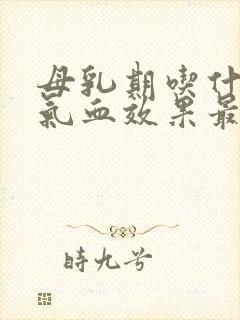 母乳期喫什
氣血效果最
時九兮